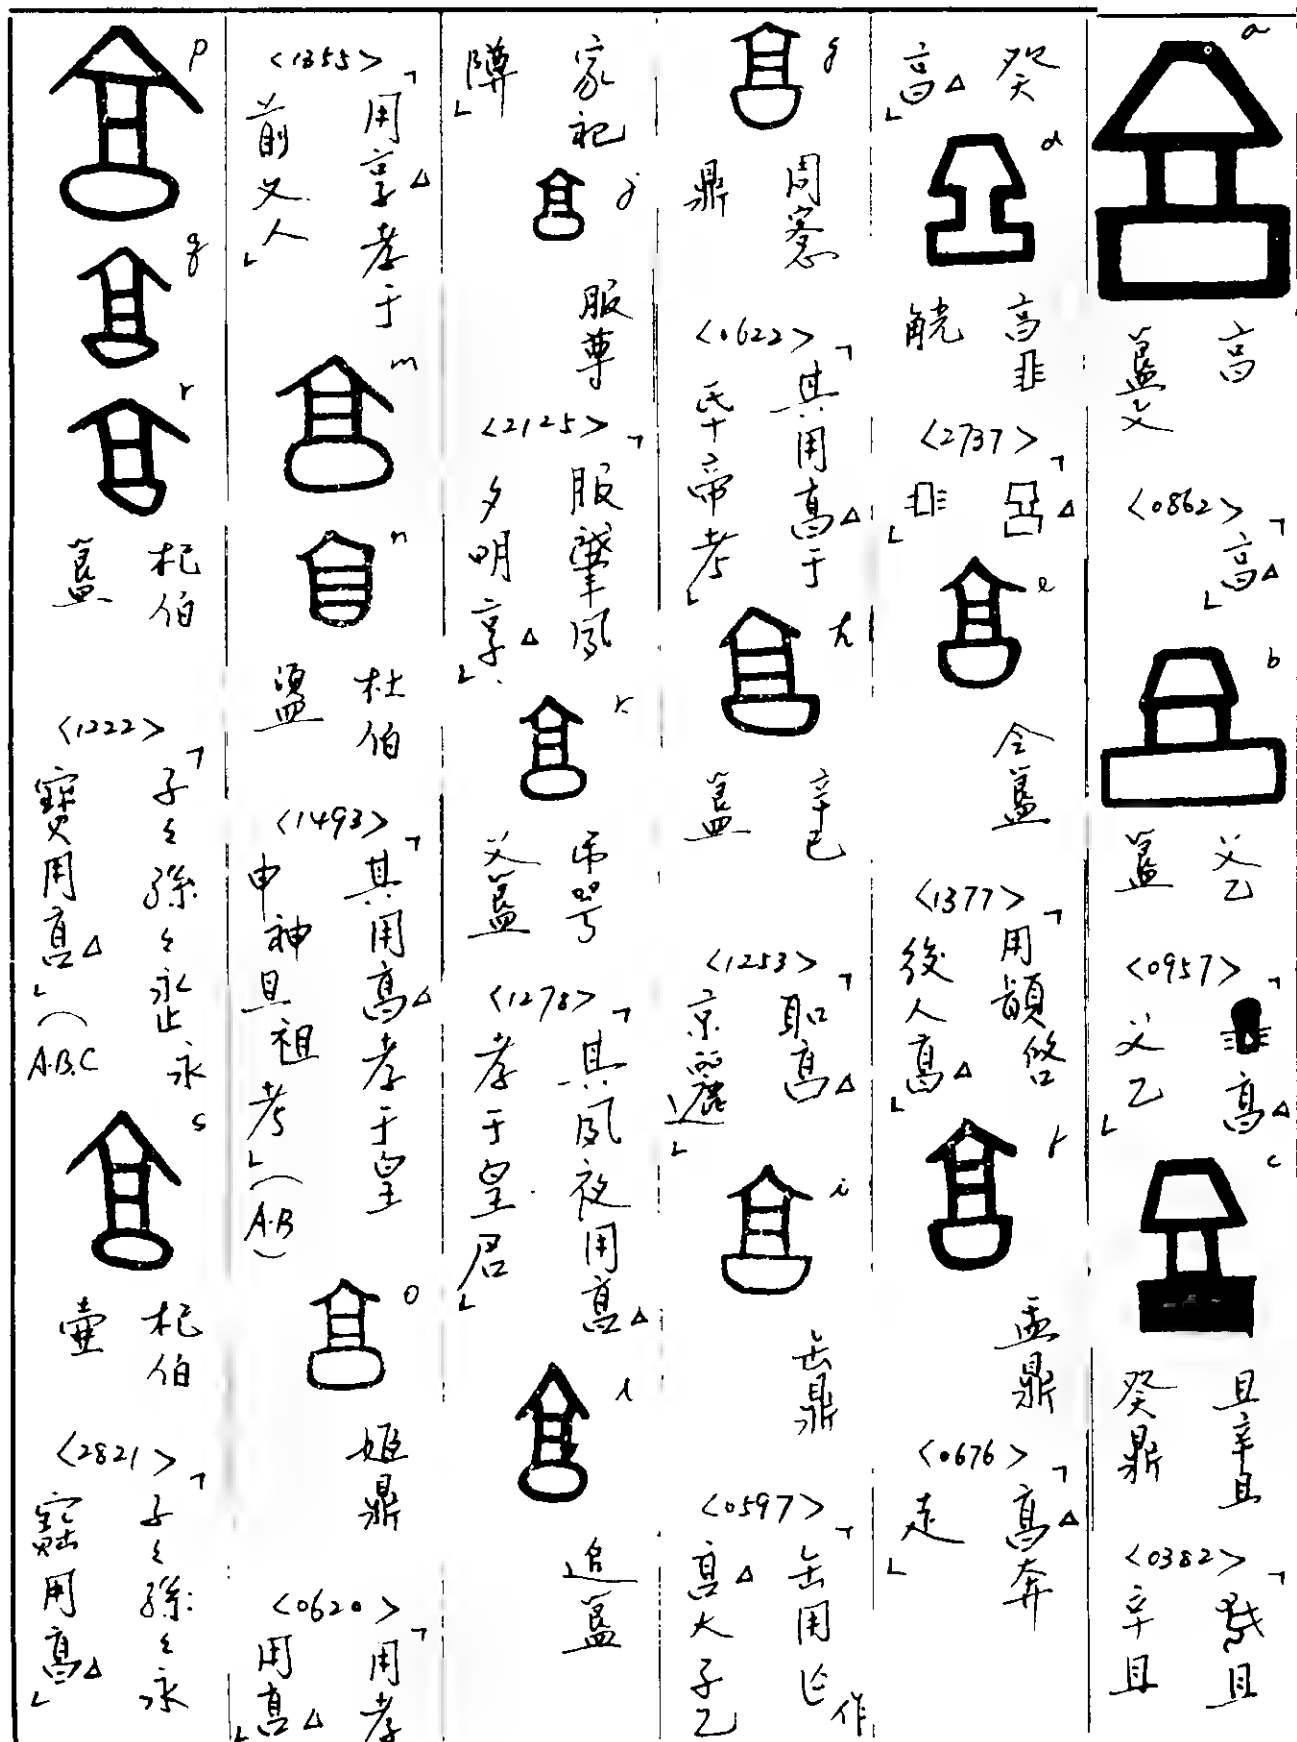 a
亯
簋文
<0862>
「亯△」
b
父乙
簋
<0957>
「亯△
父乙」
c
且辛且
癸鼎
<0382>
「
且
辛且
癸
亯△」
d
亯
觥
<2737>
「△
」
e
令簋
<1377>
「用
後人亯△」
f
盂鼎
<0676>
「亯△奔
走」
g
周窓
鼎
<0622>
「其用亯△于
氒帝考」
h
辛巳
簋
<1253>
「耶亯△
京」
i
缶鼎
<0597>
「缶用乍作
亯△大子乙
家祀
障」
j
服尊
<2125>
「服肇夙
夕明享△」
k
父簋
<1278>
「其夙夜用亯△
孝于皇君」
l
追簋
<1355>
「用享△孝于
前文人」
m
n
杜伯
盨
<1493>
「其用亯△孝于皇
申神且祖考」(A.B)
o
姬鼎
<0620>
「用孝
用亯△」
p
q
r
杞伯
簋
<1222>
「子々孫々永
寶用亯△」(A.B.C
s
杞伯
壷
<2821>
「子々孫々永
寶用亯△」